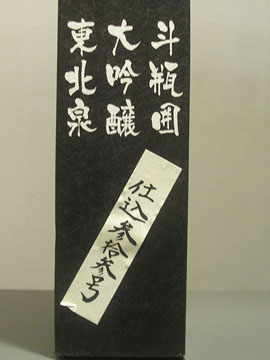 斗瓶囲
大吟醸
東北泉
仕込参拾参号